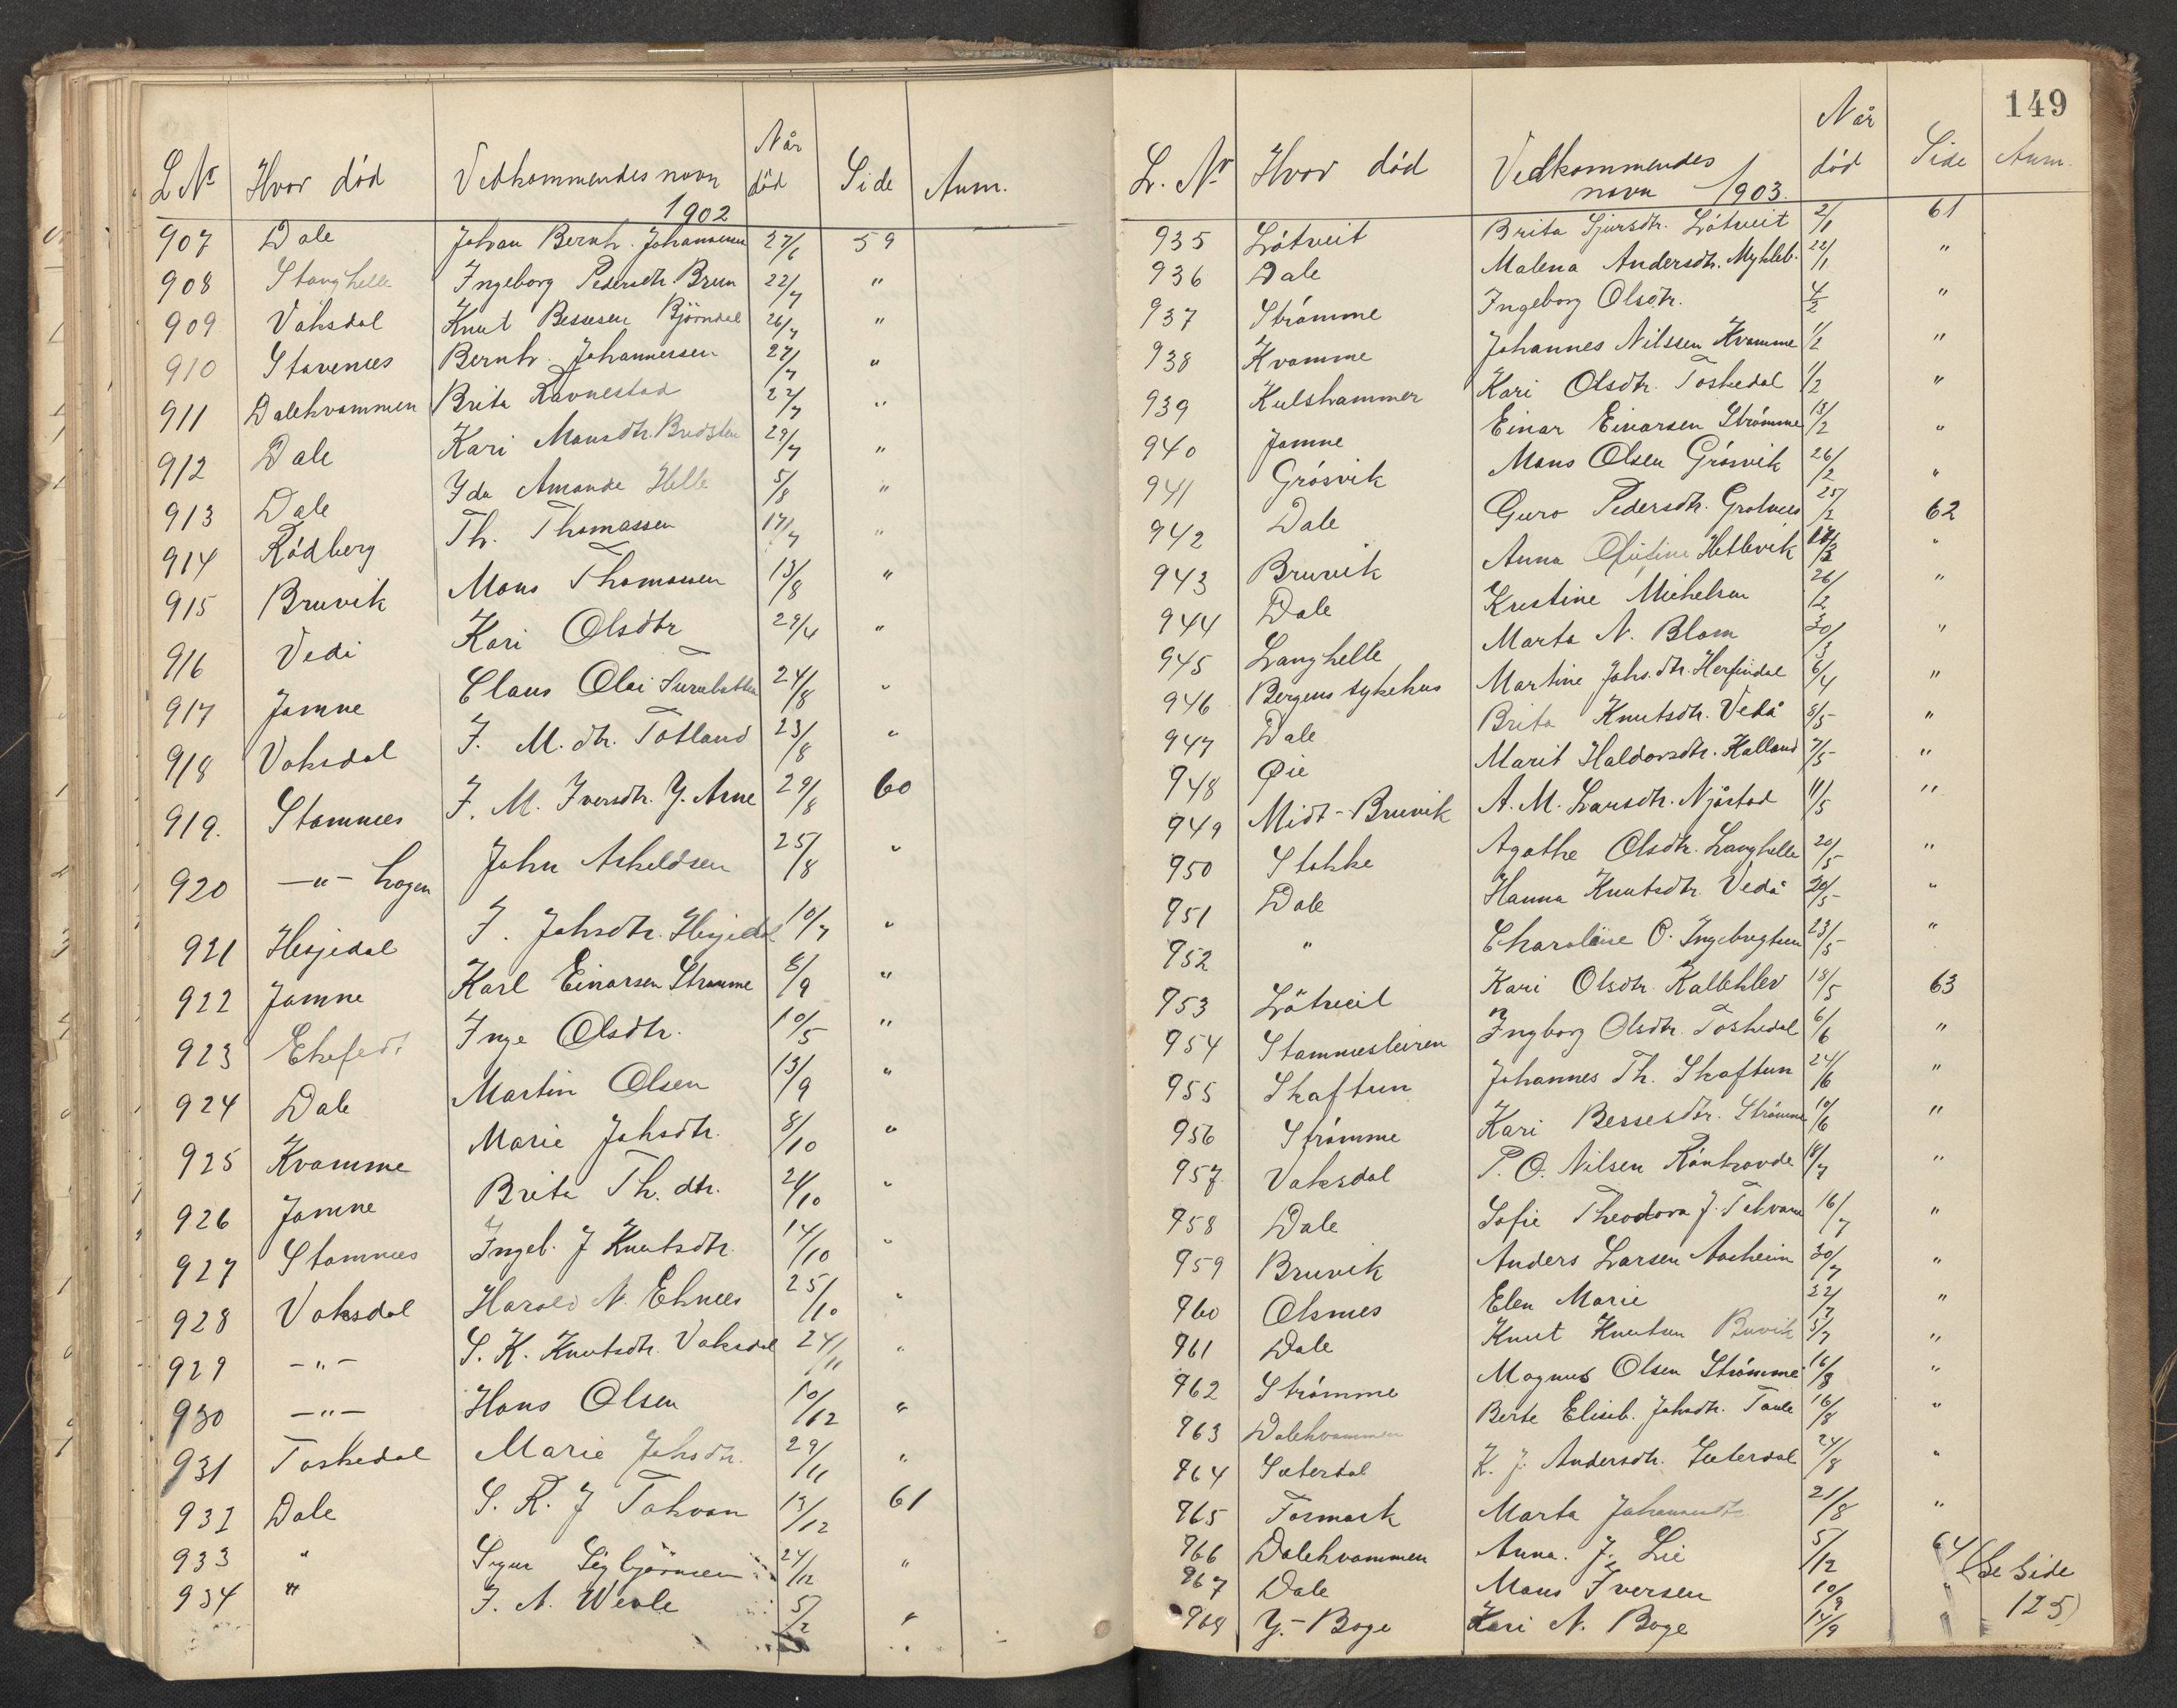 L No Hvor död Vedkommendes navn Når död Side Anm.
1902
907 Dale Johan Bernh. Johannesen 27/6 59
908 Stanghelle Ingeborg Pedersdtr. Brun 22/7 "
909 Vaksdal Knut Bessesen Björndal 26/7 "
910 Stavenes Bernh. Johannessen 27/7 "
911 Dalekvammen Brita Ravnestad 27/7 "
912 Dale Kari Monsdtr. 29/7 "
913 Dale Ida Amanda Helle 5/8 "
914 Rödberg Th. Thomassen 17/7 "
915 Bruvik Mons Thomassen 13/8 "
916 Vedi Kari Olsdtr 29/4 "
917 Jamne Claus Olai 24/8 "
918 Vaksdal J. M. dtr. Totland 23/8 "
919. Stamnes J. M. Iversdtr. Y. Arne 29/8 60
920 -"- hagen John Askeldsen 25/8 "
921 Hesjedal J. Johsdtr. Hesjedal 10/7 "
922 Jamne Karl Einarsen Strømme 8/9 "
923 Inge Olsdtr. 10/5 "
924 Dale Martin Olsen 13/9 "
925 Kvamme Marie Johsdtr. 8/10 "
926 Jamne Brita Th. dtr. 24/10 "
927 Stamnes Ingeb. J Knutsdtr. 14/10 "
928 Vaksdal Harald N. Eknes 25/10 "
929 -"- S. K. Knutsdtr. Vaksdal 24/11 "
930 -"- Hans Olsen 10/12 "
931 Toskedal Marie Johsdtr. 29/11 "
932 Dale S. R. J Takvam 13/12 61
933 " Sigbjörnsen 24/12 "
934 " J. A. Weole 5/2 "
149
L. No Hvor död Vedkommendes navn 1903. Når död Side Anm.
935 Låtveit Brita Sjursdtr. Låtveit 2/1 61
936 Dale Malena Andersdtr. Mykleb. 22/1 "
937 Strömme Ingeborg Olsdtr. 4/2 "
938 Kvamme Johannes Nilssen Kvamme 1/2 "
939 Kulshammer Kari Olsdtr. Toskedal 1/2 "
940 Jamne Einar Einarsen Strömme 13/2 "
941 Grösvik Mons Olsen Grösvik 26/2 "
942 Dale Guro Pedersdtr. Grotnes 25/2 62
943 Bruvik Anna Hetlevik "
944 Dale Kristine Mikelsen 26/2 "
945 Langhelle Marta N. Blom 30/3 "
946 Bergens sykehus Martine Johs.dtr. Herfindal 6/4 "
947 Dale Brita Knutsdtr. Vedå 8/5 "
948 Øie Marit Haldorsdtr. Halland 7/5 "
949 Midt-Bruvik A. M. Larsdtr. Njåstad 11/5 "
950 Stokke Agathe Olsdtr. Langhelle 20/5 "
951 Dale Hanna Knutsdtr. Vedå 20/5 "
952 " O. Ingebrigtsen 23/5 "
953 Låtveit Kari Olsdtr. Kalleklev 18/5 63
954 Stamnesleiren Ingborg Olsdtr. Toskedal 6/6 "
955 Skaftun Johannes Th. Skaftun 24/6 "
956 Strömme Kari Bessesdtr. Strömme 10/6 "
957. Vaksdal P. O. Nilsen 18/7 "
958 Dale Sofie Theodora J. Takvam 16/7 "
959 Bruvik Anders Larsen Aaheim 30/7 "
960 Olsnes Elen Marie 22/7 "
961 Dale Knut Knutsen Buvik 5/7 "
962 Strömme Magnus Olsen Strömme 16/8 "
963 Dalekvammen Berte Eliseb. Johsdtr. 16/8 "
964 Sæterdal K. J. Andersdtr. Sæterdal 24/8 "
965 Tormark Marta Johannesdtr 21/8 "
966 Dalekvammen Anna. J. Lie 5/12 64 (Se side
967 Dale Mons Iversen 10/9 " 125)
968 Y.- Boge Kari N. Boge 14/9 "